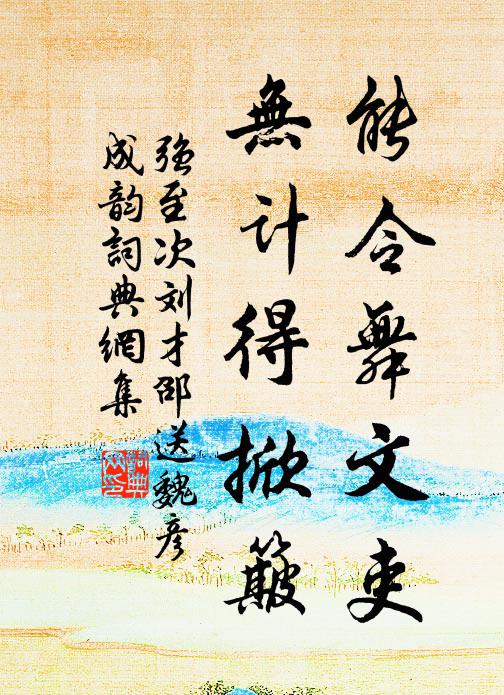 能令舞文吏
無计得掀簸
强至次刘才邵送魏彦
成韵詞典網集